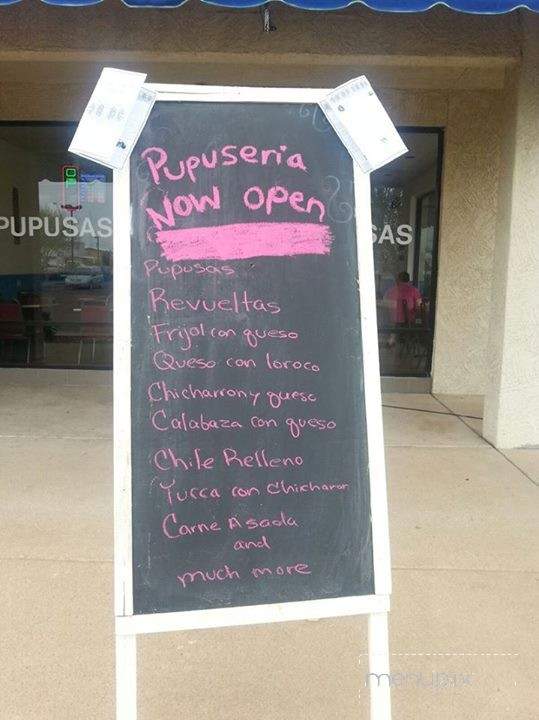 Pupuseria
Now open
Pupusas
Revueltas
Frijol con queso
Queso con loroco
Chicharron y queso
Calabaza con queso
Chile Relleno
Yucca con Chicharon
Carne Asada
and
much more
PUPUSAS
SAS
OP
menupix